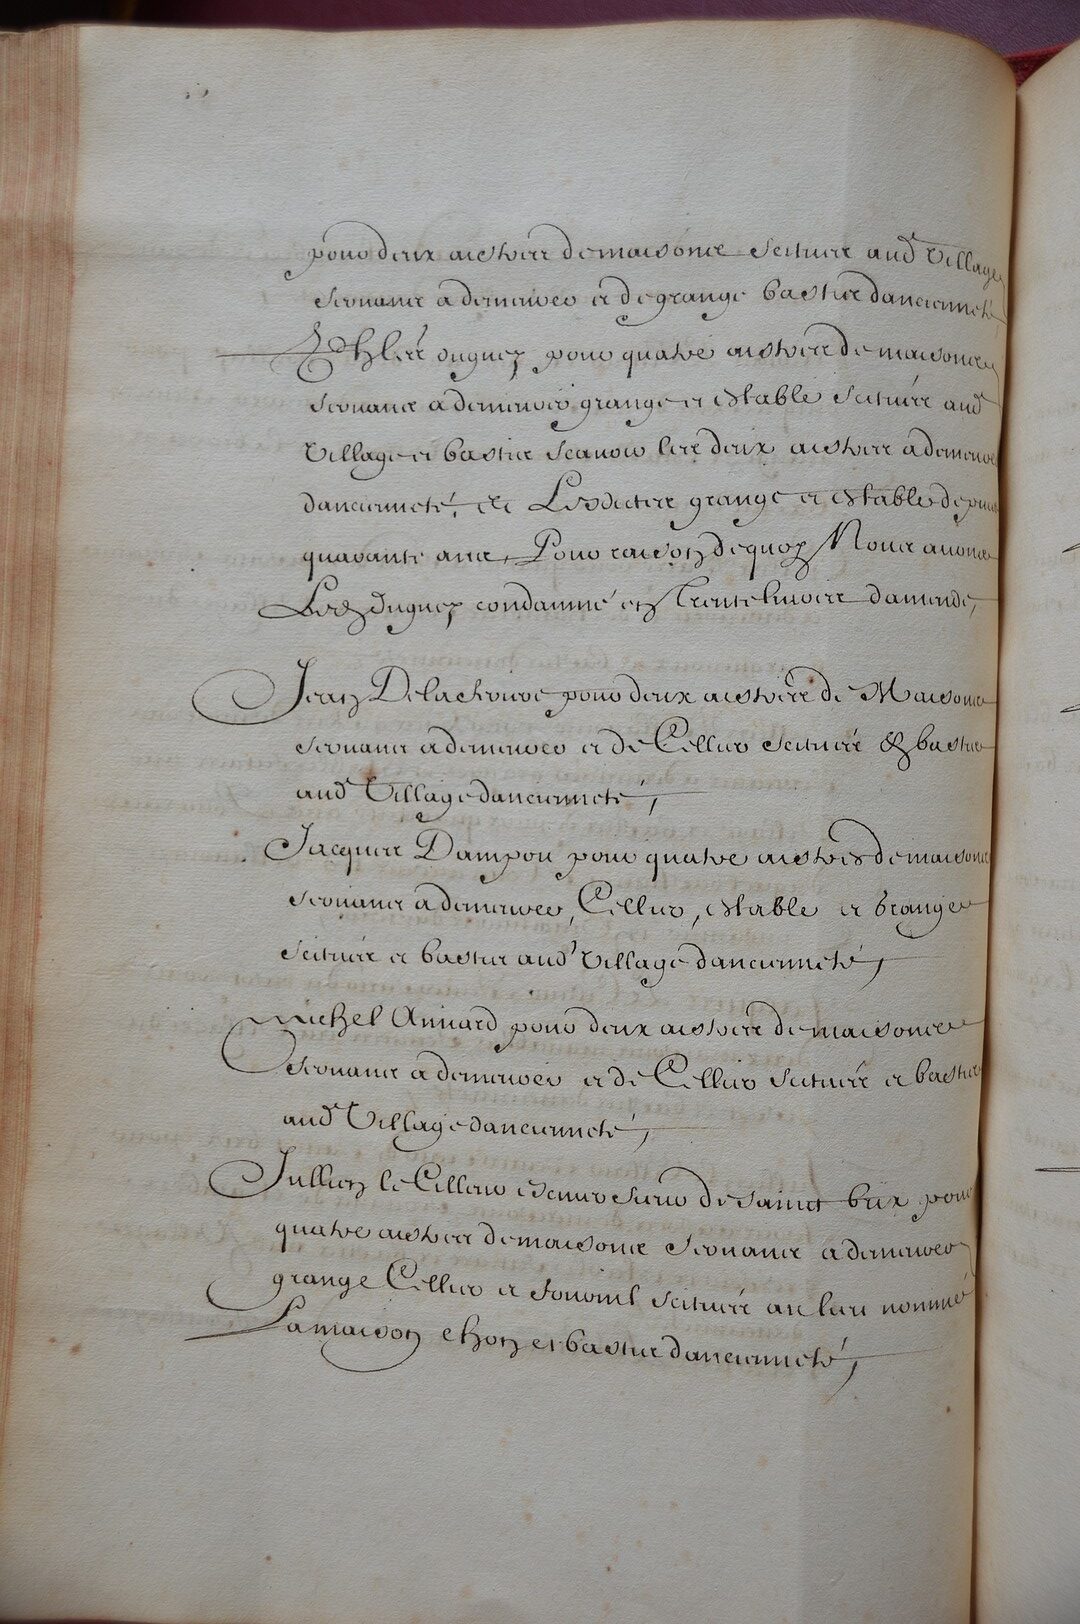 pour deux aistres de maisons scituéz aud. Village
seruans a demeurer et de grange bastiez danciennetté
Duguez pour quatre aistres de maisons
seruans a demeurer grange et estable scituéz aud.
Village et bastiez scauoir les deux aistres a demeurer
danciennetté, et Lesdictes grange et estable depuis
quarante ans, Pour raison dequoy Nous auons
Led. Duguez condamné en Trente liures damende,
Jean Delachouë pour deux aistres de Maisons
seruans a demeurer et de Cellier scituéz et bastiez
aud. Village danciennetté,
Jacques Dampou pour quatre aistres de maisons
seruans a demeurer, Cellier, estable et Grange
scituéz et bastiez aud. Village danciennetté,
Michel Annard pour deux aistres de maisons
seruans a demeurer et de Cellier scituéz et bastiez
aud. Village danciennetté,
Jullien le Cilleur escuier sieur de sainct brix pour
quatre aistres de maisons seruans a demeurer
grange Cellier et fournil scituéz au lieu nommé
La maison et bastiez danciennetté,